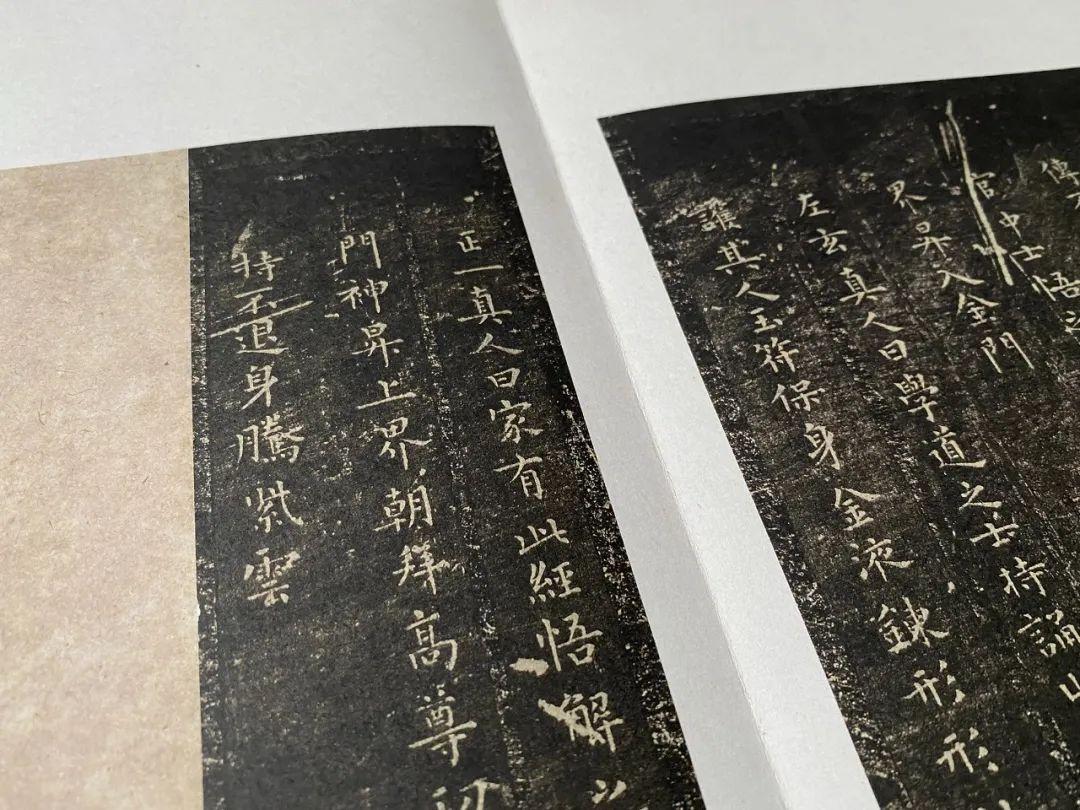 傳
官中士悟之
界昇入金門
左玄真人曰學道之士持誦
護其人玉符保身金液鍊形形
正一真人曰家有此經悟解之
門神昇上界朝拜高尊
持不退身騰紫雲